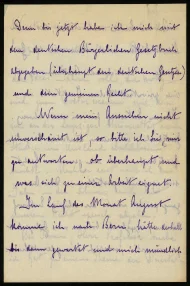 Denn bis jetzt haben ich mich mit
dem deutschen Bürgerlichen Gesetzbuche
abgegeben (überhaupt den deutschen
und dem gemeinen Recht.
Wenn mein nicht
unverschämt ist, so bitte ich Sie mir
zu antworten, ob überhaupt und
was sich zu einer Arbeit eignet.
Im Lauf des Monat August
komme ich nach Bern, hätte deshalb
bis dann gewartet und mich mündlich